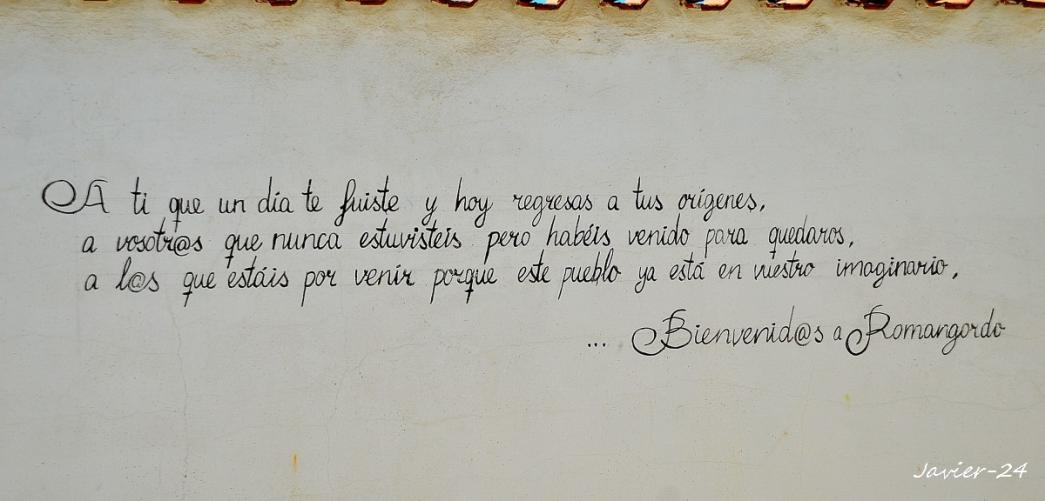 A ti que un día te fuiste y hoy regresas a tus orígenes,
a vosotr@s que nunca estuvisteis pero habéis venido para quedaros,
a l@s que estáis por venir porque este pueblo ya está en vuestro imaginario,
... Bienvenid@s a Romangordo
Javier-24